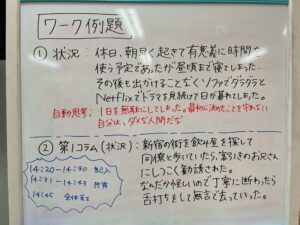 ワーク例題
① 状況: 休日、朝早く起きて有意義に時間を
使う予定であったが昼頃まで寝てしまった…
その後も出かけることなくソファでダラダラと
Netflixでドラマを見続けて日が暮れてしまった。
自動思考: 1日を無駄にしてしまった。最初に決めたことを守れない
自分は、ダメな人間だな
② 第1コラム(状況): 新宿の街を飲み屋を探して
同僚と歩いていたら、客引きのお兄さん
にしつこく勧誘された。
なんだか怪しいので丁寧に断わったら
舌打ちをして無言で去っていった。
14:20-14:30 記入
14:31-14:43 共有
14:45 全体共有